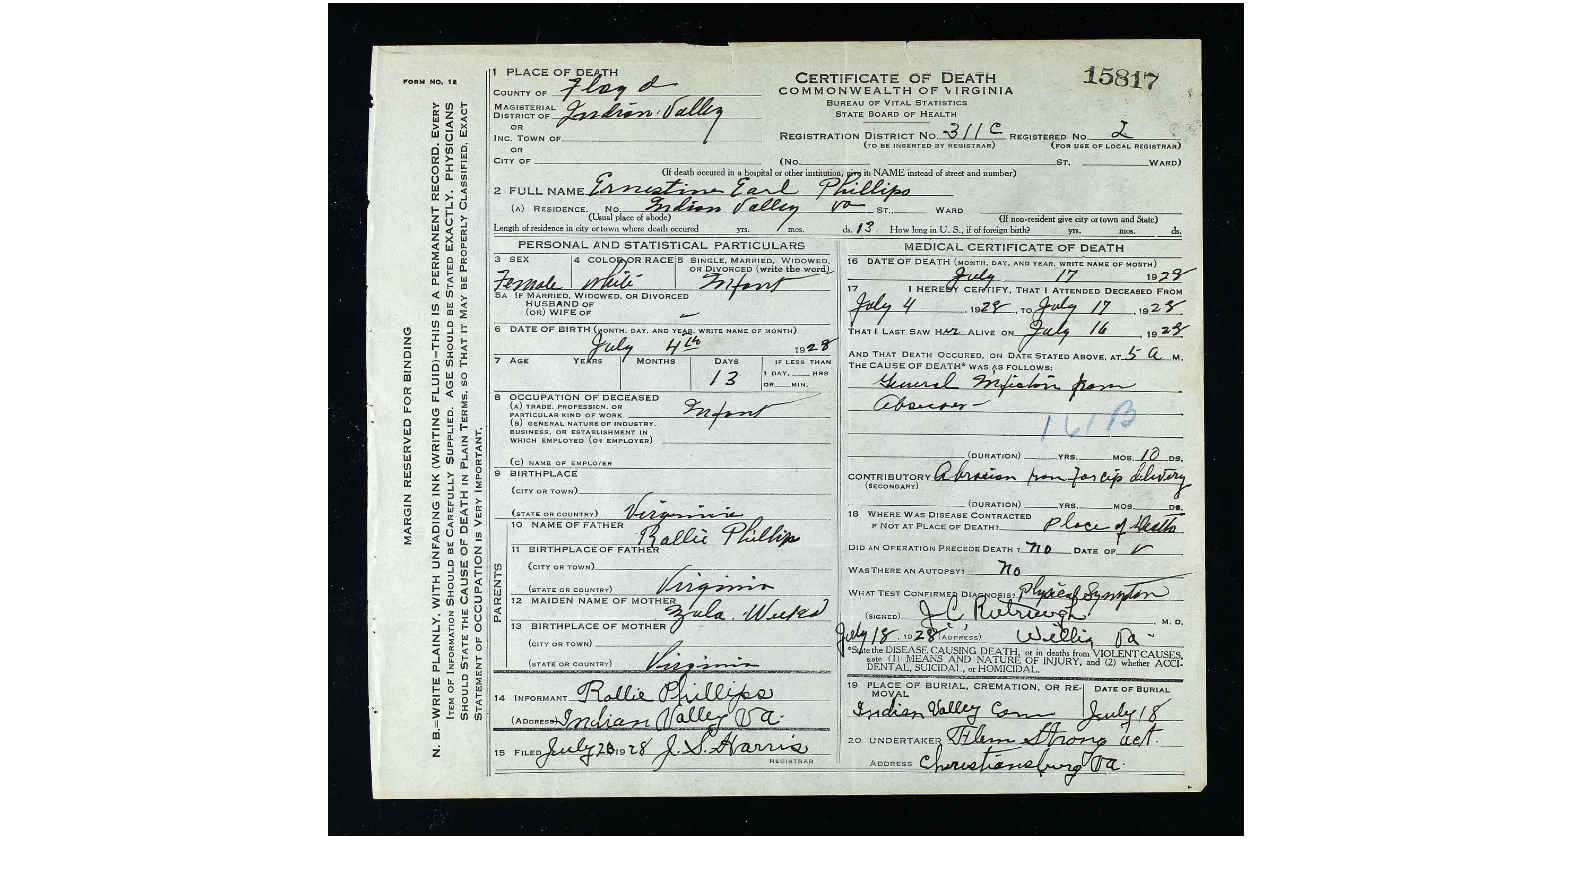 FORM NO. 12
MARGIN RESERVED FOR BINDING
N. B.—WRITE PLAINLY, WITH UNFADING INK (WRITING FLUID)—THIS IS A PERMANENT RECORD. EVERY
ITEM OF INFORMATION SHOULD BE CAREFULLY SUPPLIED. AGE SHOULD BE STATED EXACTLY. PHYSICIANS
SHOULD STATE THE CAUSE OF DEATH IN PLAIN TERMS, SO THAT IT MAY BE PROPERLY CLASSIFIED. EXACT
STATEMENT OF OCCUPATION IS VERY IMPORTANT.
1 PLACE OF DEATH
COUNTY OF Floyd
MAGISTERIAL
DISTRICT OF Indian Valley
OR
INC. TOWN OF
OR
CITY OF
CERTIFICATE OF DEATH
COMMONWEALTH OF VIRGINIA
BUREAU OF VITAL STATISTICS
STATE BOARD OF HEALTH
15817
REGISTRATION DISTRICT NO. 311C REGISTERED NO. 2
(TO BE INSERTED BY REGISTRAR) (FOR USE OF LOCAL REGISTRAR)
(NO. ST. WARD)
(If death occured in a hospital or other institution, give its NAME instead of street and number)
2 FULL NAME Ernestine Earl Phillips
(A) RESIDENCE. NO. Indian Valley Va ST., WARD
(Usual place of abode) (If non-resident give city or town and State)
Length of residence in city or town where death occured yrs. mos. ds. 13 How long in U. S., if of foreign birth? yrs. mos. ds.
PERSONAL AND STATISTICAL PARTICULARS
3 SEX 4 COLOR OR RACE 5 SINGLE, MARRIED, WIDOWED,
OR DIVORCED (write the word)
Female White Infant
5A IF MARRIED, WIDOWED, OR DIVORCED
HUSBAND OF
(OR) WIFE OF
6 DATE OF BIRTH (MONTH, DAY, AND YEAR, WRITE NAME OF MONTH)
July 4th 1928
7 AGE YEARS MONTHS DAYS IF LESS THAN
13 1 DAY, HRS
OR MIN.
8 OCCUPATION OF DECEASED
(A) TRADE, PROFESSION, OR
PARTICULAR KIND OF WORK Infant
(B) GENERAL NATURE OF INDUSTRY,
BUSINESS, OR ESTABLISHMENT IN
WHICH EMPLOYED (OR EMPLOYER)
(C) NAME OF EMPLOYER
9 BIRTHPLACE
(CITY OR TOWN)
(STATE OR COUNTRY) Virginia
PARENTS
10 NAME OF FATHER Rallie Phillips
11 BIRTHPLACE OF FATHER
(CITY OR TOWN)
(STATE OR COUNTRY) Virginia
12 MAIDEN NAME OF MOTHER Zula Weeks
13 BIRTHPLACE OF MOTHER
(CITY OR TOWN)
(STATE OR COUNTRY) Virginia
14 INFORMANT Rallie Phillips
(ADDRESS) Indian Valley Va.
15 FILED July 20 1928 J. S. Harris
REGISTRAR
MEDICAL CERTIFICATE OF DEATH
16 DATE OF DEATH (MONTH, DAY, AND YEAR, WRITE NAME OF MONTH)
July 17 1928
17 I HEREBY CERTIFY, THAT I ATTENDED DECEASED FROM
July 4, 1928, TO July 17, 1928
THAT I LAST SAW Her ALIVE ON July 16, 1928
AND THAT DEATH OCCURED, ON DATE STATED ABOVE, AT 5 a M.
THE CAUSE OF DEATH* WAS AS FOLLOWS:
General Infection from
161B
(DURATION) YRS. MOS. 10 DS.
CONTRIBUTORY Abrasion from forcip delivery
(SECONDARY)
(DURATION) YRS. MOS. DS.
18 WHERE WAS DISEASE CONTRACTED
IF NOT AT PLACE OF DEATH? Place of Death
DID AN OPERATION PRECEDE DEATH? No DATE OF
WAS THERE AN AUTOPSY? No
WHAT TEST CONFIRMED DIAGNOSIS? Physical Symptom
(SIGNED) J C , M. D.
July 18, 1928 (ADDRESS) Willis Va
*State the DISEASE CAUSING DEATH, or in deaths from VIOLENT CAUSES,
state (1) MEANS AND NATURE OF INJURY, and (2) whether ACCI-
DENTAL, SUICIDAL, or HOMICIDAL.
19 PLACE OF BURIAL, CREMATION, OR RE-
MOVAL DATE OF BURIAL
Indian Valley Cem July 18
20 UNDERTAKER Flem Strong act.
ADDRESS Christiansburg Va.